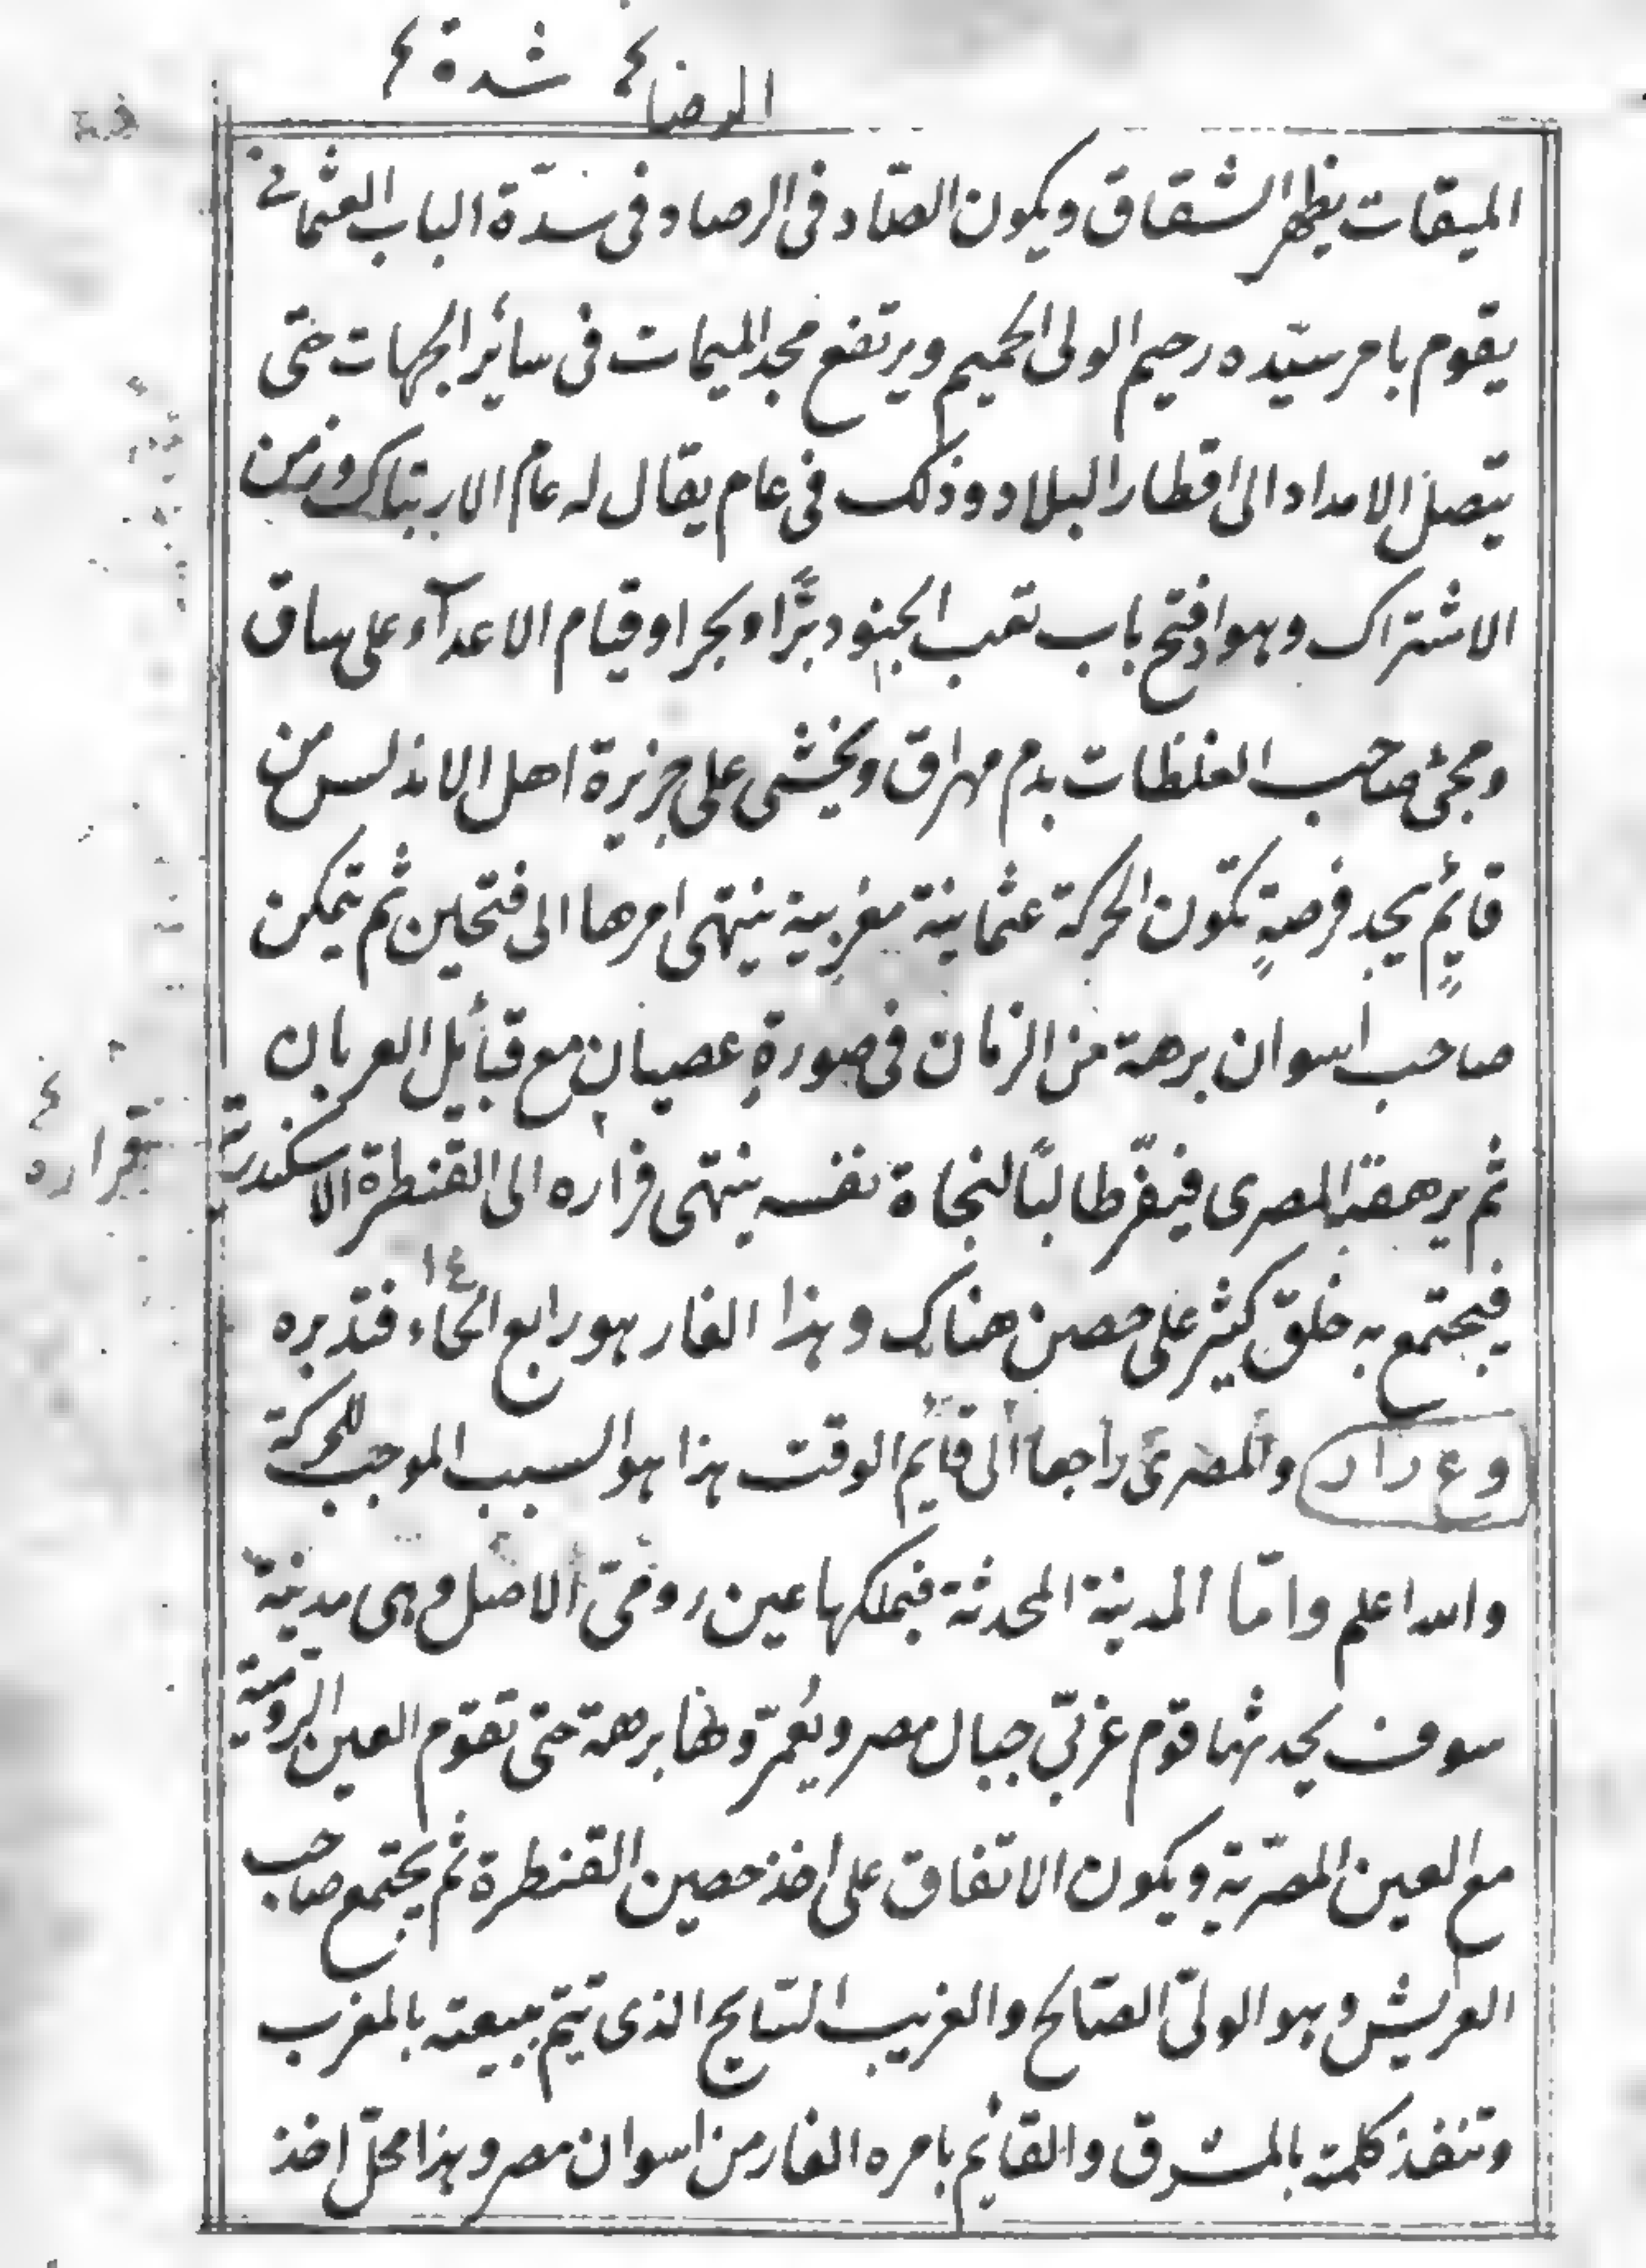 شدة
الميقات يظهر الشقاق ويكون الصّاد فى الرصاد فى سدّة الباب العثمانى
يقوم بامر سيّده رحيم الولى الحميم ويرتفع مجد الميمات فى سائر الجهات حتى
يتصل الامداد الى اقطار البلاد وذلك فى عام يقال له عام الارتباك وزمن
الاشتراك وهو اذ فتح باب تعب الجنود برًّا وبحرا وقيام الاعدآء على ساق
ومجئ صاحب الغلظات بدم مهراق ويخشى على جزيرة اهل الاندلس من
قايمٍ يجد فرصةٍ تكون الحركة عثمانية مغربية ينتهى امرها الى فتحين ثم يتمكن
صاحب اسوان برهة من الزمان فى صورةِ عصيان مع قبائل العربان
ثم يرهقه المصرى فيفرّ طالبًا لنجاة نفسه ينتهى فراره الى القنطرة الاسكندرية
بقراره
فيجتمع به خلق كثير على حصن هناك وهذا الفار هو رابع الحاء ١٤ فتدبره
وع راد والمصرى راجعا الى قايم الوقت هذا هو السبب الموجب للحركة
والله اعلم وامّا المدينة المحدثة فيملكها عين رومىّ الاصل وهى مدينة
سوف يحدثها قوم غربىّ جبال مصر ويُعمّرونها برهة حتى تقوم العين الروميّة
مع العين المصريّة ويكون الاتفاق على اخذ حصين القنطرة ثم يجتمع صاحب
العريش وهو الولىّ الصّالح والغريب السّايح الذى تتم بيعته بالمغرب
وتنفذ كلمته بالمشرق والقائم بامره الفار من اسوان مصر وهذا محلّ اخذ